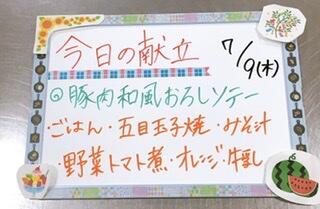 今日の献立
7/9(木)
◎豚肉和風おろしソテー
・ごはん・五目玉子焼・みそ汁
・野菜トマト煮・オレンジ・牛乳